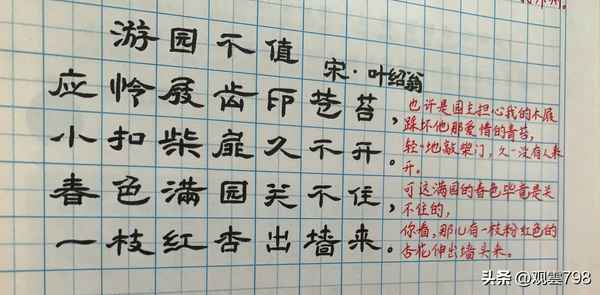 游园不值
宋·叶绍翁
应怜屐齿印苍苔，
小扣柴扉久不开。
春色满园关不住，
一枝红杏出墙来。
也许是园主担心我的木屐
踩坏他那爱惜的青苔，
轻~地敲柴门，久~没有人来
开。
可这满园的春色毕竟是关
不住的，
你看，那儿有一枝粉红色的
杏花伸出墙头来。
头条 @观雲798